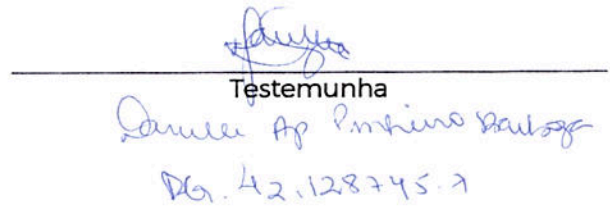 Testemunha
Ap Pinheiro Barboza
RG. 42.128745.7